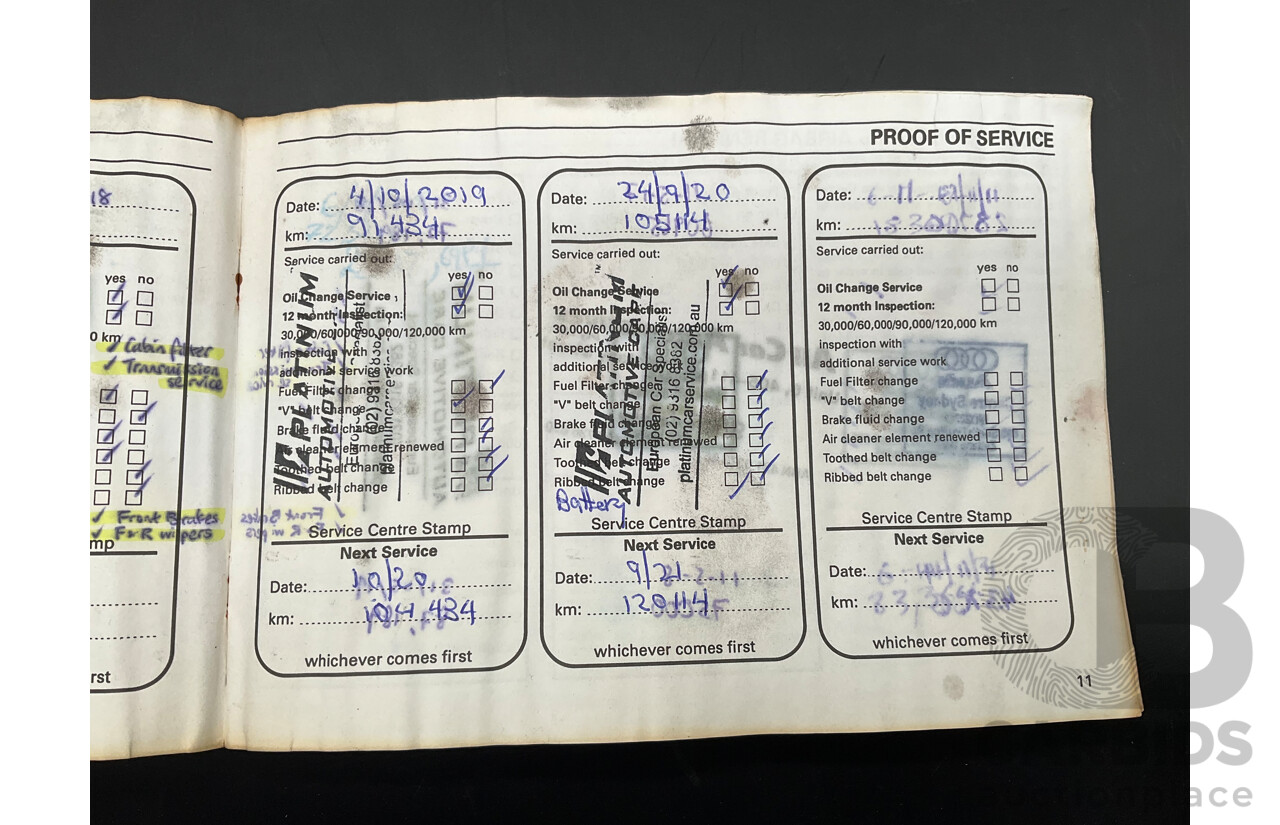 PROOF OF SERVICE
18
yes no
0 km
✓ Cabin filter
✓ Transmission
service
✓ Front Brakes
✓ F & R wipers
mp
rst
Date: 4/10/2019
km: 91,434
Service carried out:
yes no
Oil Change Service
12 month Inspection:
30,000/60,000/90,000/120,000 km
inspection with
additional service work
Fuel Filter change
"V" belt change
Brake fluid change
Air cleaner element renewed
Toothed belt change
Ribbed belt change
PLATINUM
AUTOMOTIVE
(02) 9316 8382
platinumcarservice
Service Centre Stamp
Next Service
Date: 10/20
km: 104,434
whichever comes first
Date: 24/9/20
km: 105114
Service carried out:
yes no
Oil Change Service
12 month Inspection:
30,000/60,000/90,000/120,000 km
inspection with
additional service work
Fuel Filter change
"V" belt change
Brake fluid change
Air cleaner element renewed
Toothed belt change
Ribbed belt change
Battery
PLATINUM™
AUTOMOTIVE CARE
European Car Specialists
(02) 9316 8382
platinumcarservice.com.au
Service Centre Stamp
Next Service
Date: 9/21
km: 120114
whichever comes first
Date:
km:
Service carried out:
yes no
Oil Change Service
12 month Inspection:
30,000/60,000/90,000/120,000 km
inspection with
additional service work
Fuel Filter change
"V" belt change
Brake fluid change
Air cleaner element renewed
Toothed belt change
Ribbed belt change
Service Centre Stamp
Next Service
Date:
km:
whichever comes first
11
CARBIDS
auctionplace